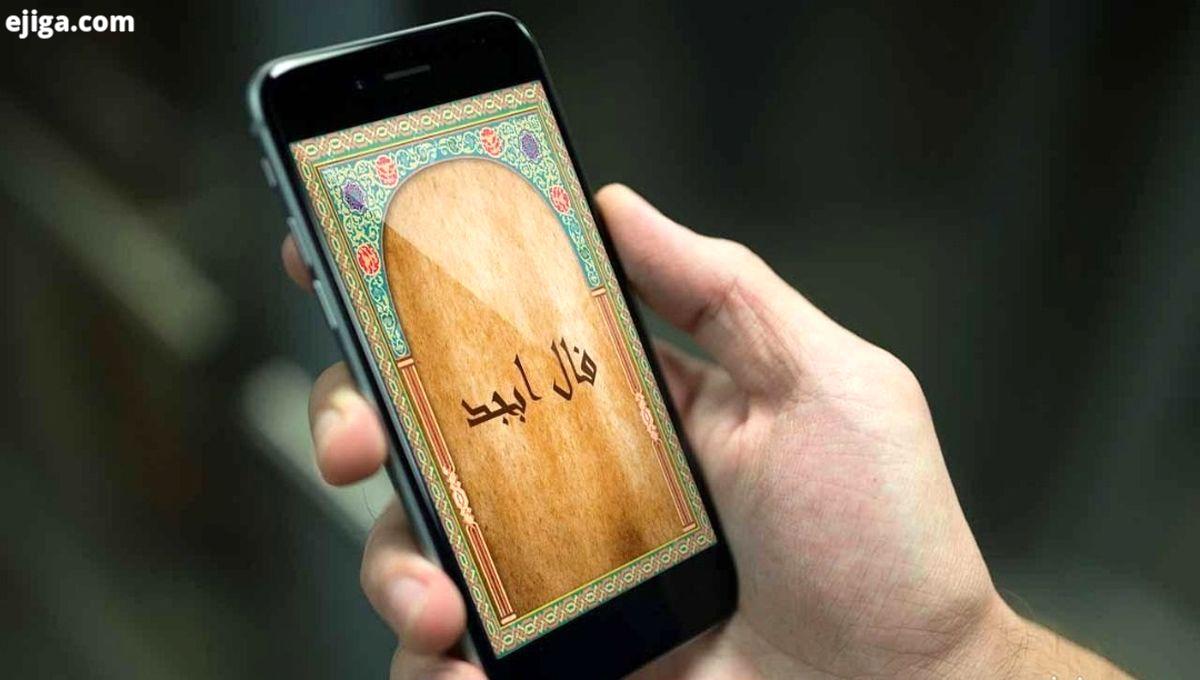 ejiga.com
فال ابجد